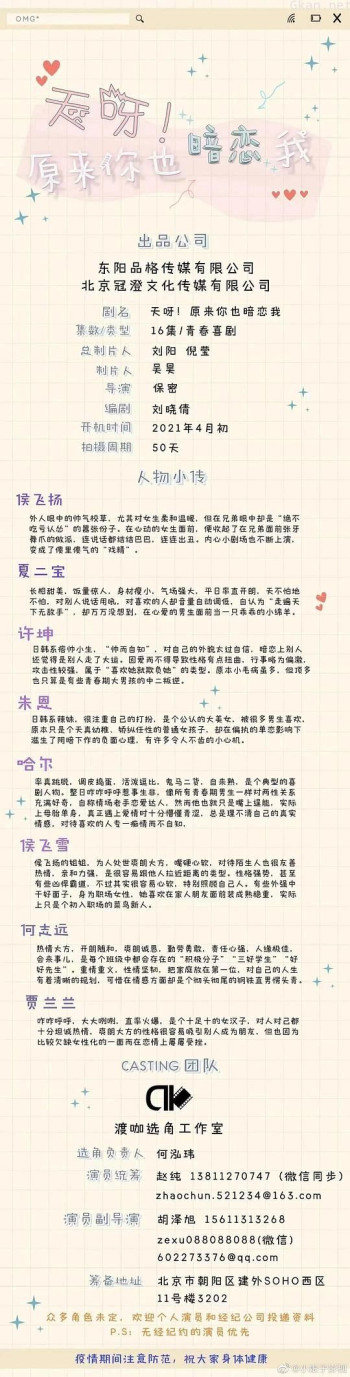 6kan.net
OMG*
天呀！
原来你也暗恋我
出品公司
东阳品格传媒有限公司
北京冠澄文化传媒有限公司
剧名 天呀！原来你也暗恋我
集数/类型 16集/青春喜剧
总制片人 刘阳 倪莹
制片人 吴昊
导演 保密
编剧 刘晓倩
开机时间 2021年4月初
拍摄周期 50天
人物小传
侯飞扬
外人眼中的帅气校草，尤其对女生柔和温暖，但在兄弟眼中却是“绝不
吃亏认怂”的嚣张份子。在心动的女生面前，便收起了在兄弟面前张牙
舞爪的做派，连说话都结结巴巴，连连出丑。内心小剧场也不断上演，
变成了傻里傻气的“戏精”。
夏二宝
长相甜美，饭量惊人，身材瘦小，气场强大，平日率直开朗，天不怕地
不怕，对别人说话用吼，对喜欢的人却音量自动调低，自认为“走遍天
下无敌手”，却万万没想到，在心爱的男生面前当一只乖乖的小绵羊。
许坤
日韩系痞帅小生，“帅而自知”，对自己的外貌太过自信，暗恋上别人
还觉得是别人走了大运。因爱而不得导致性格有点扭曲，行事略为偏激，
攻击性较强，属于“喜欢她就欺负她”的类型。原本小毛病虽多，但顶多
也只算是有些青春期大男孩的中二叛逆。
朱恩
日韩系辣妹，很注重自己的打扮，是个公认的大美女，被很多男生喜欢，
原本只是个天真幼稚、娇纵任性的普通女孩子，却在偏执的单恋影响下
滋生了阴暗下作的负面心理，有许多令人不齿的小心机。
哈尔
率真跳脱，调皮捣蛋，活泼逗比，鬼马二货，自来熟，是个典型的喜
剧人物。整日咋咋呼呼惹事生非，像所有青春期男生一样对两性关系
充满好奇，自称情场老手恋爱达人，然而他也就只是嘴上逞能，实际
上母胎单身，真正遇上爱情时十分懵懂青涩，总是理不清自己的真实
情感，对待喜欢的人专一痴情而不自知。
侯飞雪
侯飞扬的姐姐，为人处世爽朗大方，嘴硬心软，对待陌生人也很友善
热情，亲和力强，是很容易跟他人拉近距离的类型。性格强势，甚至
有些凶悍霸道，不过其实很容易心软，特别照顾自己人。有些外强中
干好面子，身为职场女性，她喜欢在家人朋友面前装成熟稳重，实际
上只是个初入职场的菜鸟新人。
何志远
热情大方，开朗随和，爽朗诚恳，勤劳勇敢，责任心强，人缘极佳，
会来事儿，是每个班级中都会存在的“积极分子”“三好学生”“好
好先生”。重情重义，性情坚韧，把家庭放在第一位，对自己的人生
有着清晰的规划，可惜在情感方面却是个彻头彻尾的钢铁直男愣头青。
贾兰兰
咋咋呼呼，大大咧咧，直率火爆，是个十足十的女汉子，对人对己都
十分坦诚热情，爽朗大方的性格很容易吸引别人成为朋友，但也因为
比较欠缺女性化的一面而在恋情上屡屡受挫。
CASTING 团队
渡咖选角工作室
选角负责人 何泓玮
演员统筹 赵纯 13811270747（微信同步）
zhaochun.521234@163.com
演员副导演 胡泽旭 15611313268
zexu088088088(微信)
602273376@qq.com
筹备地址 北京市朝阳区建外SOHO西区
11号楼3202
众多角色未定，欢迎个人演员和经纪公司投递资料
P.S：无经纪约的演员优先
疫情期间注意防范，祝大家身体健康